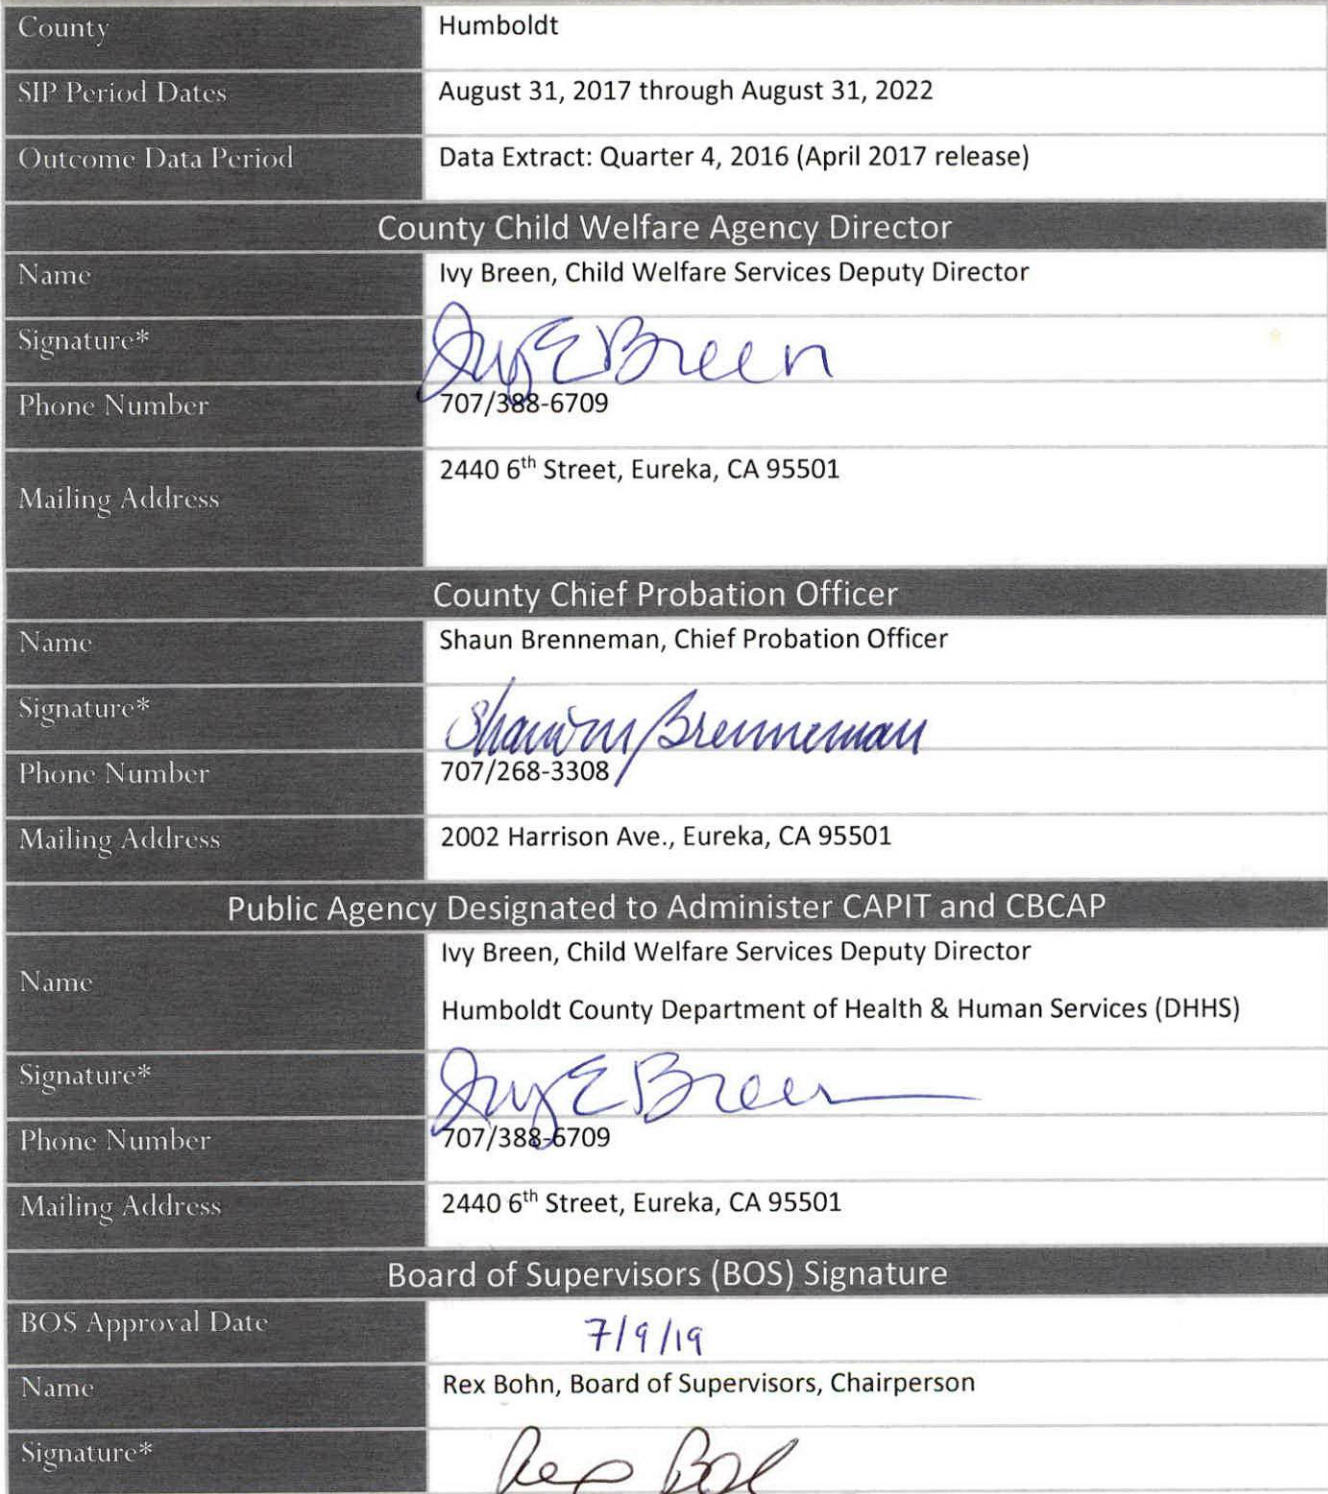 County Humboldt
SIP Period Dates August 31, 2017 through August 31, 2022
Outcome Data Period Data Extract: Quarter 4, 2016 (April 2017 release)
County Child Welfare Agency Director
Name Ivy Breen, Child Welfare Services Deputy Director
Signature* Ivy E Breen
Phone Number 707/388-6709
Mailing Address 2440 6th Street, Eureka, CA 95501
County Chief Probation Officer
Name Shaun Brenneman, Chief Probation Officer
Signature* Shaun Brenneman
Phone Number 707/268-3308
Mailing Address 2002 Harrison Ave., Eureka, CA 95501
Public Agency Designated to Administer CAPIT and CBCAP
Name Ivy Breen, Child Welfare Services Deputy Director
Humboldt County Department of Health & Human Services (DHHS)
Signature* Ivy E Breen
Phone Number 707/388-6709
Mailing Address 2440 6th Street, Eureka, CA 95501
Board of Supervisors (BOS) Signature
BOS Approval Date 7/9/19
Name Rex Bohn, Board of Supervisors, Chairperson
Signature* Rex Bohn